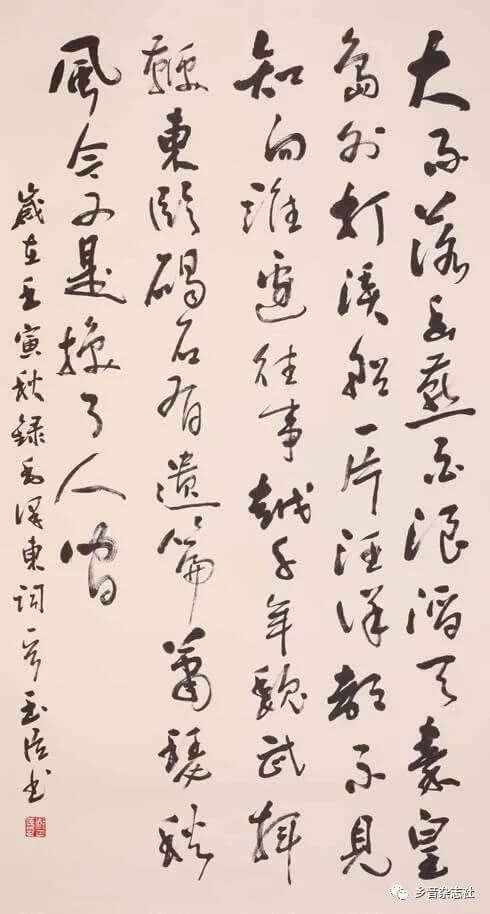 大雨落幽燕白浪滔天秦皇
島外打漁船一片汪洋都不見
知向誰邊往事越千年魏武揮
鞭東臨碣石有遺篇蕭瑟秋
風今又是換了人間
歲在壬寅秋錄毛澤東詞一首书
乡音杂志社